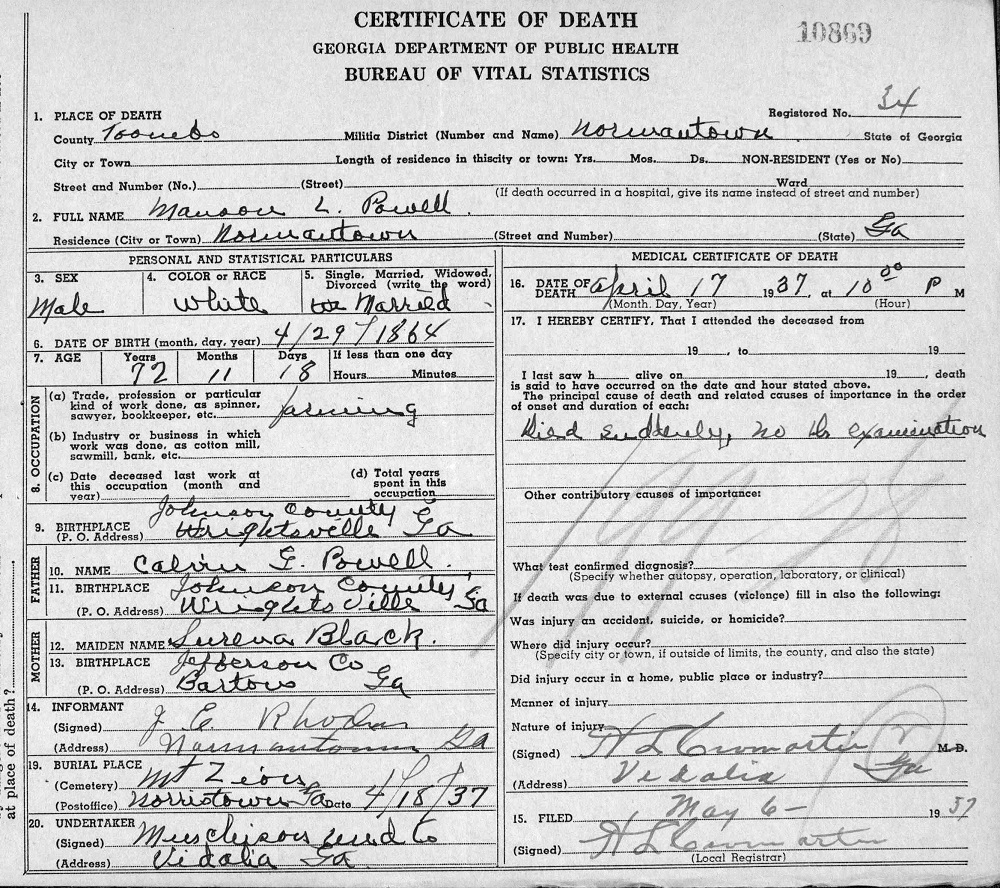 CERTIFICATE OF DEATH
10869
GEORGIA DEPARTMENT OF PUBLIC HEALTH
BUREAU OF VITAL STATISTICS
1. PLACE OF DEATH Registered No. 34
County Toombs Militia District (Number and Name) Normantown State of Georgia
City or Town Length of residence in thiscity or town: Yrs. Mos. Ds. NON-RESIDENT (Yes or No)
Street and Number (No.) (Street) Ward
(If death occurred in a hospital, give its name instead of street and number)
2. FULL NAME Manson L. Powell.
Residence (City or Town) Normantown (Street and Number) (State) Ga
PERSONAL AND STATISTICAL PARTICULARS
3. SEX 4. COLOR or RACE 5. Single, Married, Widowed,
Divorced (write the word)
Male White Married
6. DATE OF BIRTH (month, day, year) 4/29/1864
7. AGE Years Months Days If less than one day
72 11 18 Hours Minutes
8. OCCUPATION
(a) Trade, profession or particular
kind of work done, as spinner,
sawyer, bookkeeper, etc. farming
(b) Industry or business in which
work was done, as cotton mill,
sawmill, bank, etc.
(c) Date deceased last work at
this occupation (month and
year)
(d) Total years
spent in this
occupation
Johnson County
9. BIRTHPLACE Wrightsville Ga
(P. O. Address)
FATHER
10. NAME Calvin G. Powell.
11. BIRTHPLACE Johnson County
(P. O. Address) Wrightsville Ga
MOTHER
12. MAIDEN NAME Surena Black.
13. BIRTHPLACE Jefferson Co
(P. O. Address) Bartow Ga
14. INFORMANT
(Signed) J. E. Rhodes
(Address) Normantown Ga
19. BURIAL PLACE
(Cemetery) Mt Zion
(Postoffice) Norristown Ga Date 4/18/37
20. UNDERTAKER
(Signed) Murchison und Co
(Address) Vidalia Ga.
at place of death?
MEDICAL CERTIFICATE OF DEATH
16. DATE OF
DEATH April 17 1937, at 10 00 P M
(Month. Day, Year) (Hour)
17. I HEREBY CERTIFY, That I attended the deceased from
19 , to 19
I last saw h alive on 19 , death
is said to have occurred on the date and hour stated above.
The principal cause of death and related causes of importance in the order
of onset and duration of each:
Died suddenly, no Dr examination
Other contributory causes of importance:
What test confirmed diagnosis?
(Specify whether autopsy, operation, laboratory, or clinical)
If death was due to external causes (violence) fill in also the following:
Was injury an accident, suicide, or homicide?
Where did injury occur?
(Specify city or town, if outside of limits, the county, and also the state)
Did injury occur in a home, public place or industry?
Manner of injury
Nature of injury
(Signed) H L Cromartie M.D.
(Address) Vidalia Ga
15. FILED May 6- 1937
(Signed) H L Cromartie
(Local Registrar)